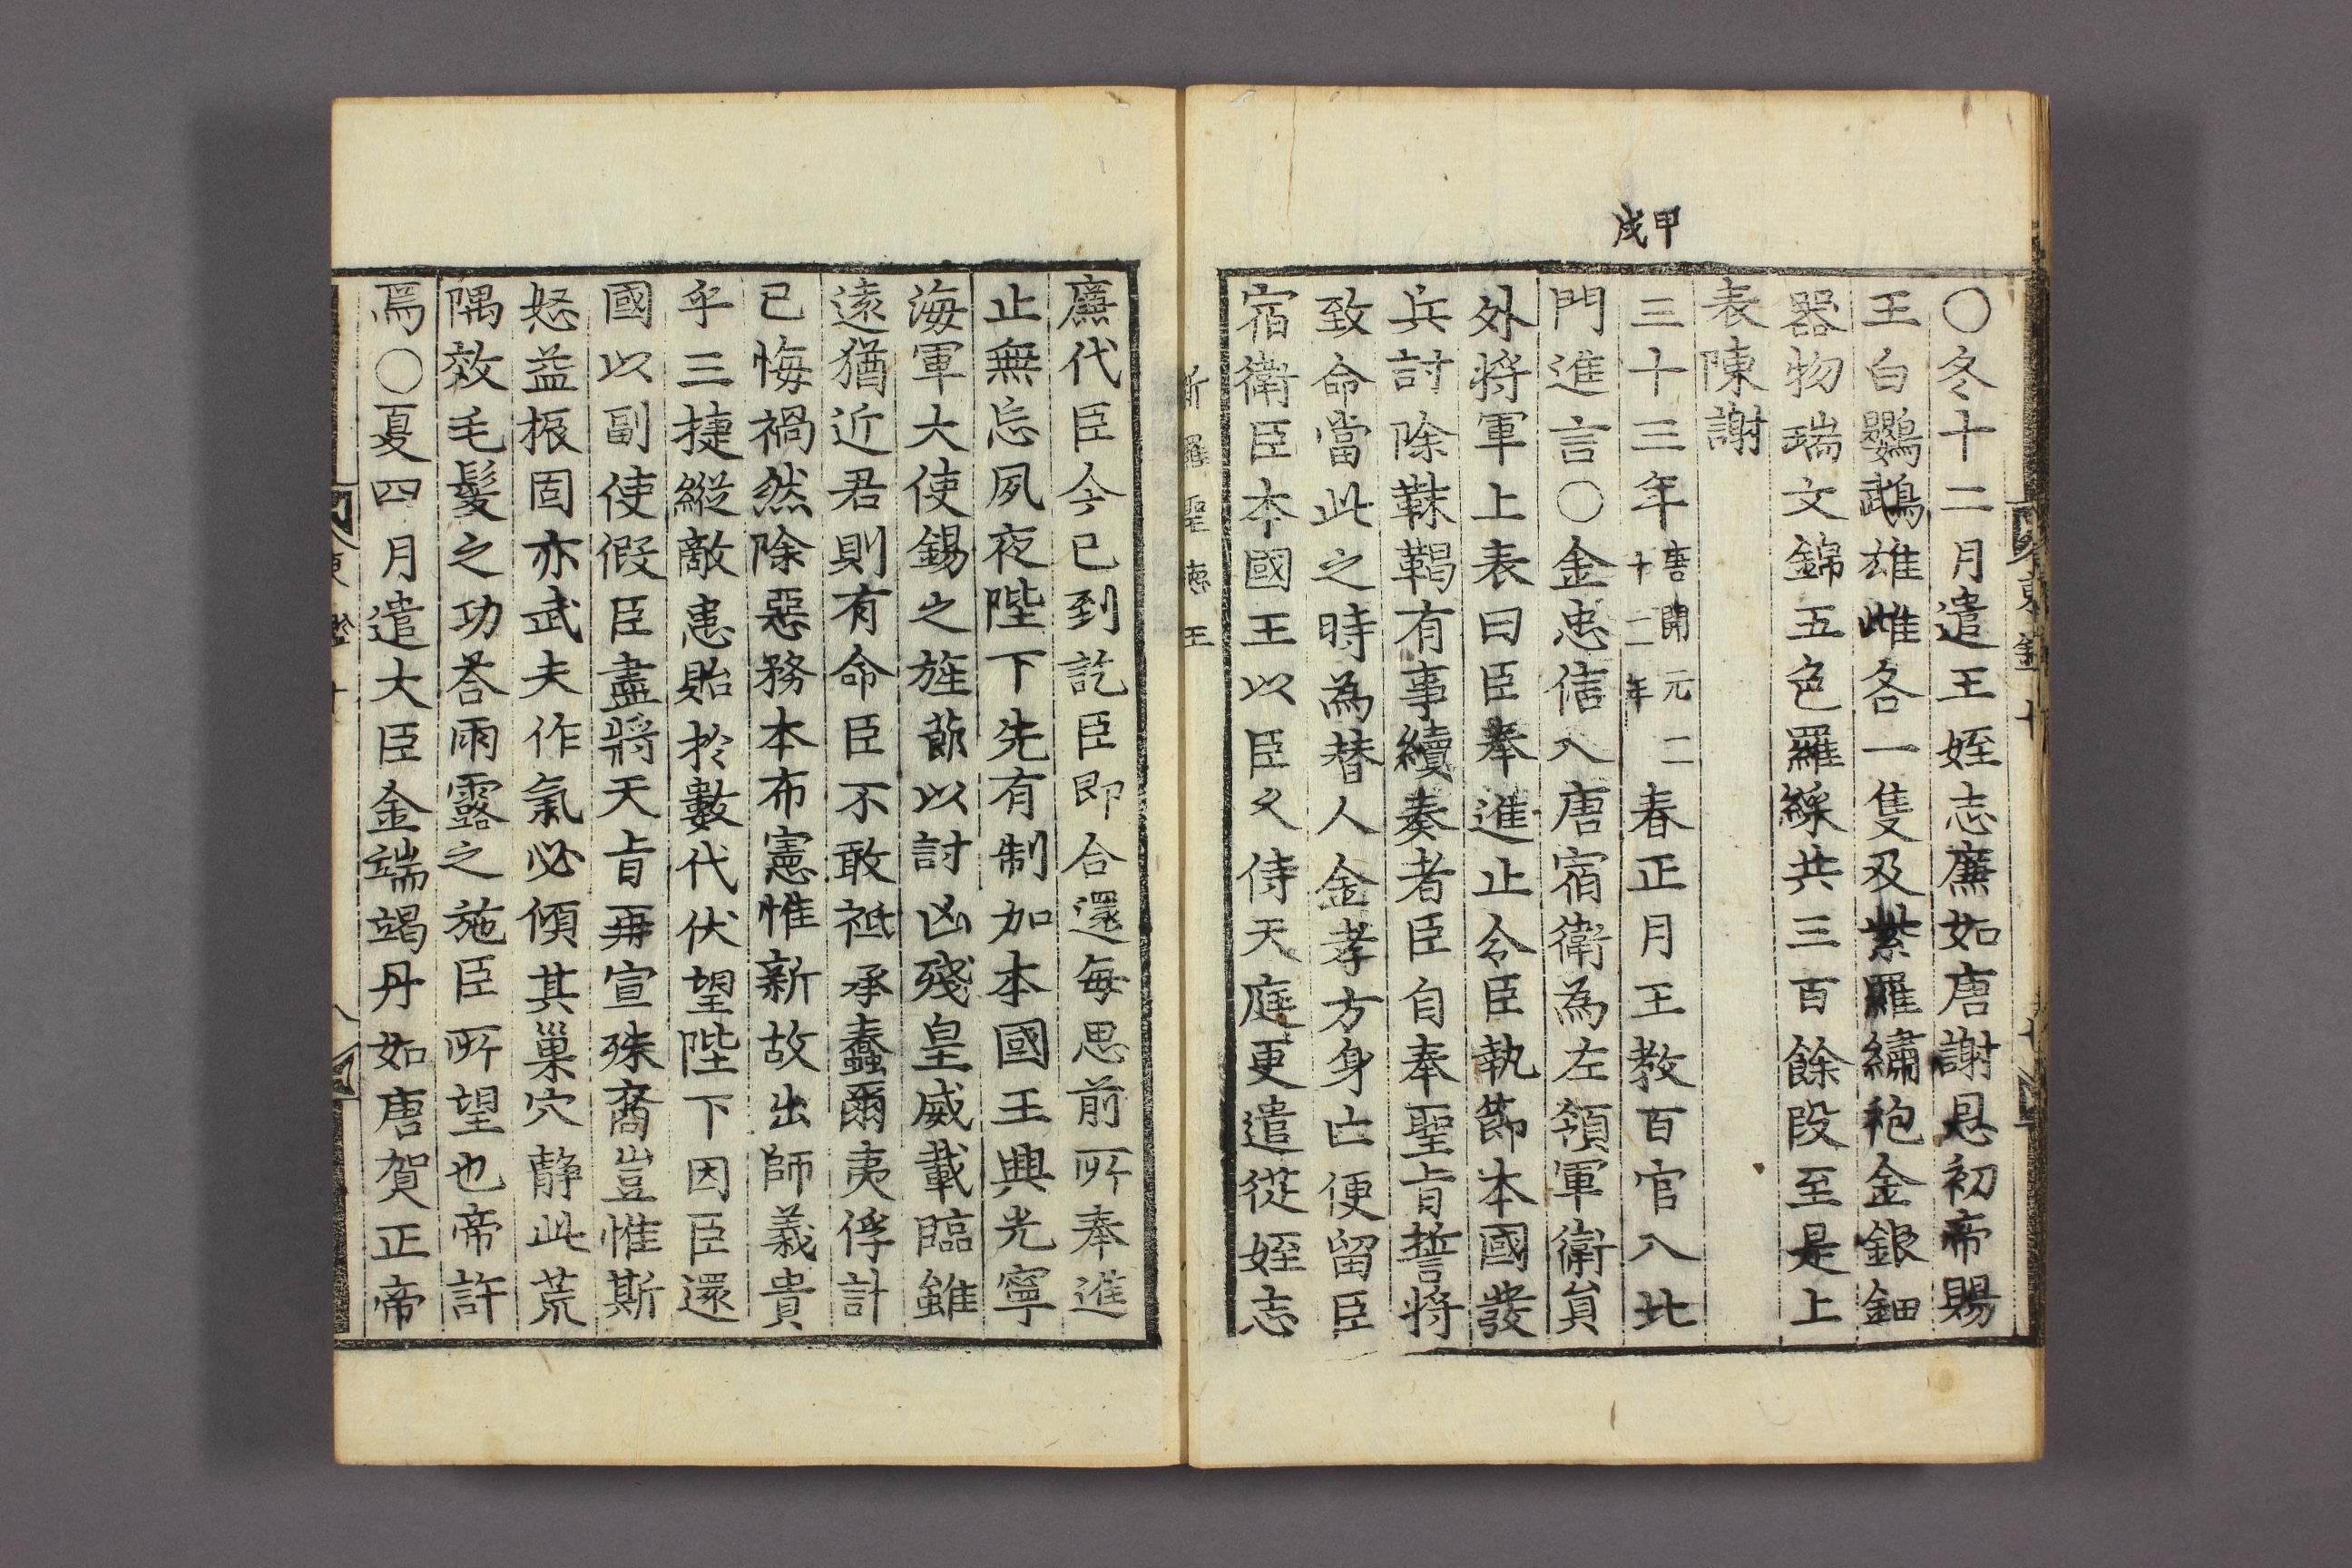 甲戌
○冬十二月遣王姪志廉如唐謝恩初帝賜
王白鸚鵡雄雌各一隻及紫羅繡袍金銀鈿
器物瑞文錦五色羅綵共三百餘段至是上
表陳謝
三十三年唐開元二十二年春正月王敎百官入北
門進言○金忠信入唐宿衛爲左領軍衛員
外將軍上表曰臣奉進止令臣執節本國發
兵討除靺鞨有事續奏者臣自奉聖旨誓將
致命當此之時爲替人金孝方身亡便留臣
宿衛臣本國王以臣久侍天庭更遣從姪志
新羅聖德王
廉代臣今已到訖臣即合還每思前所奉進
止無忘夙夜陛下先有制加本國王興光寧
海軍大使錫之旌節以討凶殘皇威載臨雖
遠猶近君則有命臣不敢祗承蠢爾夷俘計
已悔禍然除惡務本布憲惟新故出師義貴
乎三捷縱敵患貽於數代伏望陛下因臣還
國以副使假臣盡將天旨再宣殊裔豈惟斯
怒益振固亦武夫作氣必傾其巢穴靜此荒
隅效毛髮之功荅雨露之施臣所望也帝許
焉○夏四月遣大臣金端竭丹如唐賀正帝